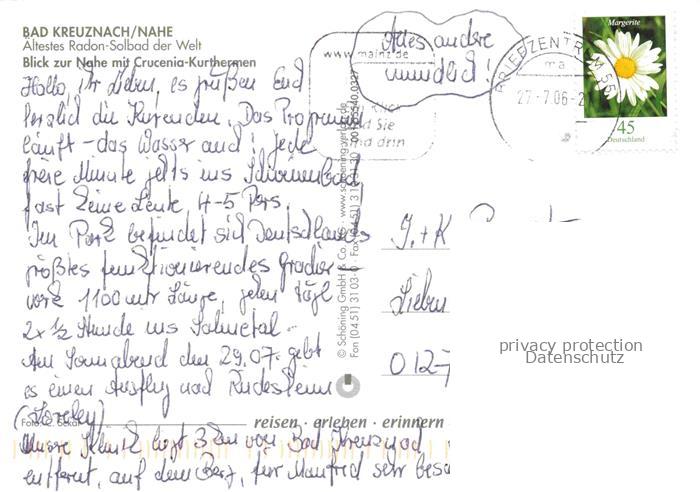 BAD KREUZNACH/NAHE
Ältestes Radon-Solbad der Welt
Blick zur Nahe mit Crucenia-Kurthermen
Hallo, Ihr Lieben, es grüßen Euch
herzlich die Kurenden. Das Programm
läuft – das Wasser auch! Jede
freie Minute geht's ins Schwimmbad,
fast keine Leute 4-5 Pers.
Im Park befindet sich Deutschlands
größtes funktionierendes Gradier-
werk 1100 mtr Länge, gehen tägl
2x ½ Stunde ins Salinetal.
Am Sonnabend den 29.07. gebt
es einen Ausflug nach Rüdesheim
(Loreley)
Unsre Klinik liegt 3 km von Bad Kreuznach
entfernt, auf dem Berg, für Manfred sehr
Alles andere
mündlich!
www.mainz.de
BRIEFZENTRUM 55
ma
27.-7.06-2
Margerite
45
Deutschland
© Schöning GmbH & Co. KG · www.schoening-verlag.de
Fon (04 51) 31 03-0 · Fax (04 51) 31
J. + K
Lieben
012
privacy protection
Datenschutz
reisen · erleben · erinnern